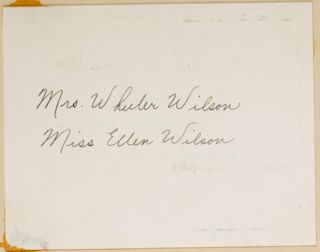 Mrs. Wheeler Wilson
Miss Ellen Wilson